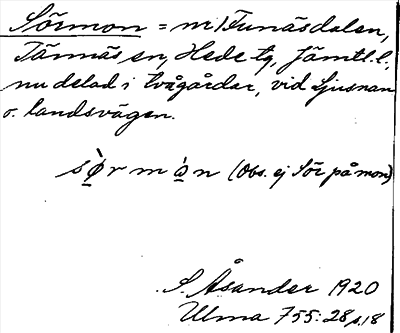 Sörmon = nr 1 Funäsdalen,
Tännäs sn, Hede tg, Jämtl. l.,
nu delad i två gårdar, vid Ljusnan
o. landsvägen.
(Obs. ej Sör på mon)
S. Åsander 1920
Ulma 755:28 s. 18